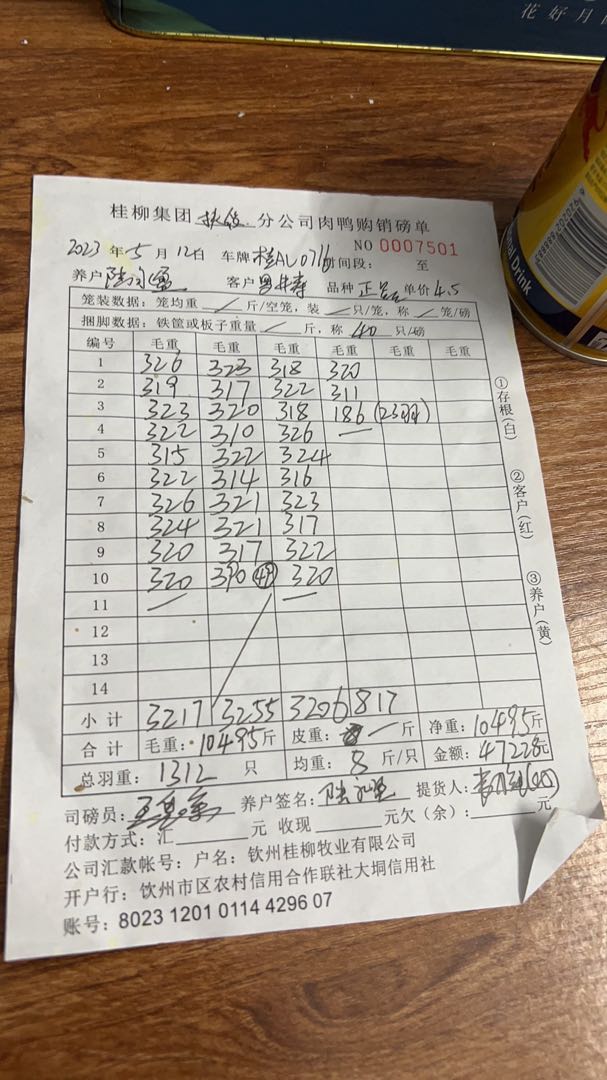 花好月
nal Drink
桂柳集团 扶绥 分公司肉鸭购销磅单
NO 0007501
2023 年 5 月 12日 车牌 桂AU0716 时间段： 至
养户 客户 粤井寿 品种 正品 单价 4.5
笼装数据：笼均重 / 斤/空笼，装 / 只/笼，称 / 笼/磅
捆脚数据：铁筐或板子重量 / 斤，称 40 只/磅
编号 毛重 毛重 毛重 毛重 毛重 毛重
1 326 323 318 320
2 319 317 322 311
3 323 320 318 186 (23羽)
4 322 310 326 —
5 315 322 324
6 322 314 316
7 326 321 323
8 324 321 317
9 320 317 322
10 320 390 320
11 — —
12
13
14
小计 3217 3255 3206 817
合计 毛重：10495斤 皮重： — 斤 净重：10495斤
总羽重：1312 只 均重：8 斤/只 金额：47228元
司磅员： 养户签名： 提货人：
付款方式：汇 元 收现 元欠（余）： 元
公司汇款帐号：户名：钦州桂柳牧业有限公司
开户行：钦州市区农村信用合作联社大垌信用社
账号：8023 1201 0114 4296 07
①存根（白）
②客户（红）
③养户（黄）